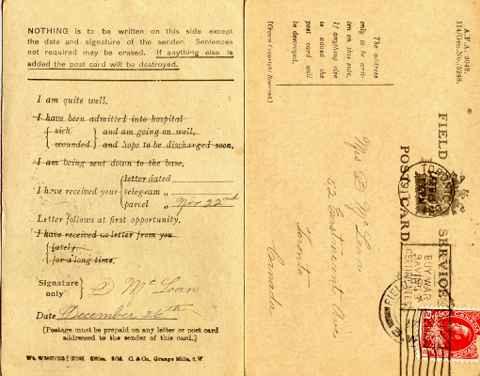 NOTHING is to be written on this side except
the date and signature of the sender. Sentences
not required may be erased. If anything else is
added the post card will be destroyed.
I am quite well.
I have been admitted into hospital
sick and am going on well.
wounded and hope to be discharged soon.
I am being sent down to the base.
letter dated
I have received your telegram „
parcel „ Nov 22nd
Letter follows at first opportunity.
I have received no letter from you
lately
for a long time.
Signature only D McLean
Date December 26th
[Postage must be prepaid on any letter or post card
addressed to the sender of this card.]
C. & Co., Grange Mills, S.W.
A.F.A. 2042.
114/Gen.No./5248.
FIELD SERVICE
POST CARD
The address
only to be writ-
ten on this side.
If anything else
is added the
post card will
be destroyed.
[Crown Copyright Reserved]
Mrs D McLean
52 Ave
Toronto
Canada
BUY WAR
SAVINGS
CERTIFICATES
FIELD
CANADA